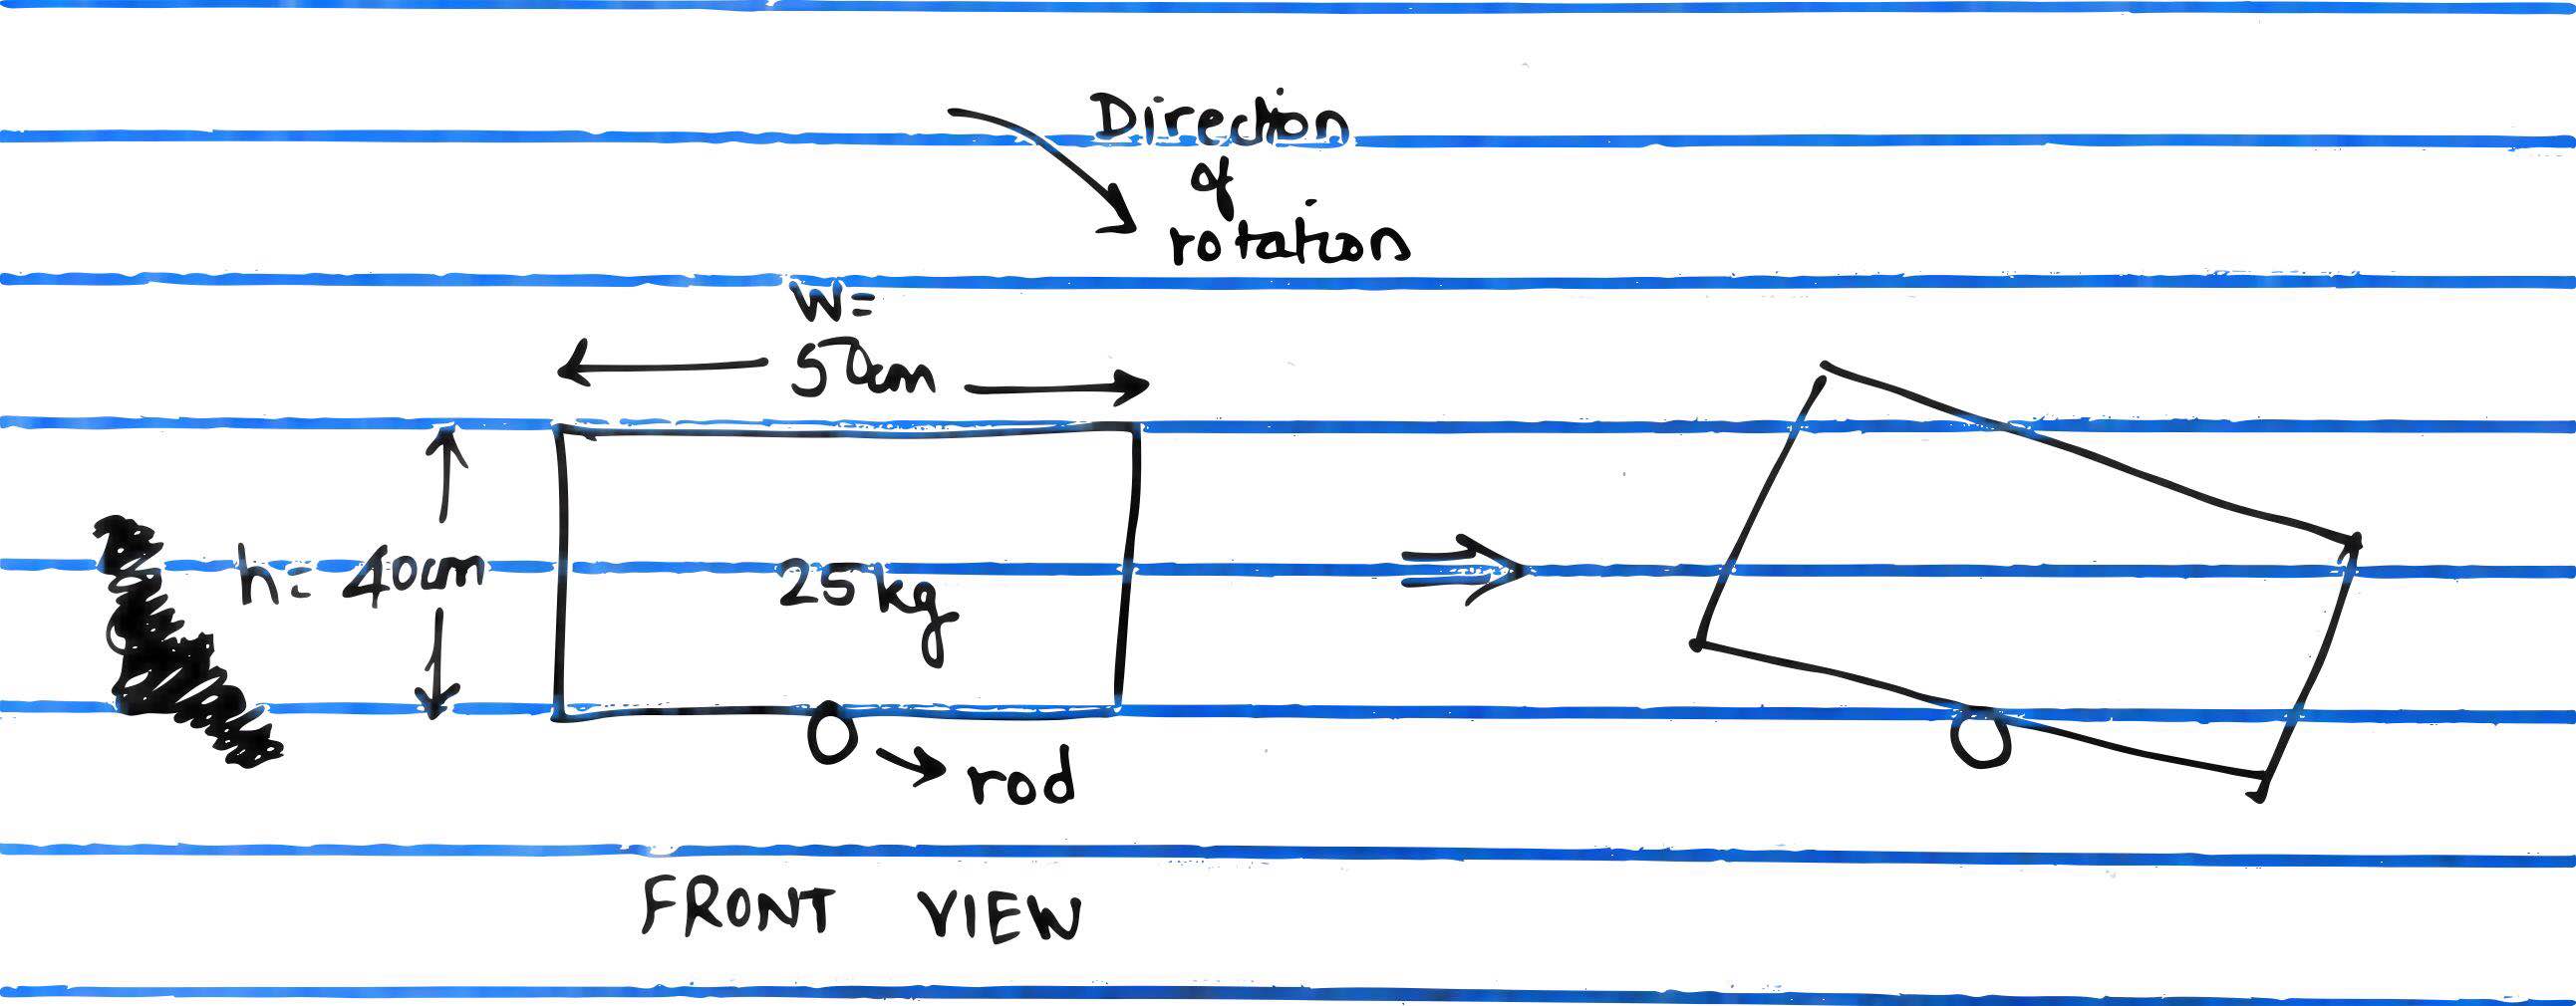 Direction
of
rotation
W=
50cm
h= 40cm
25kg
rod
FRONT VIEW